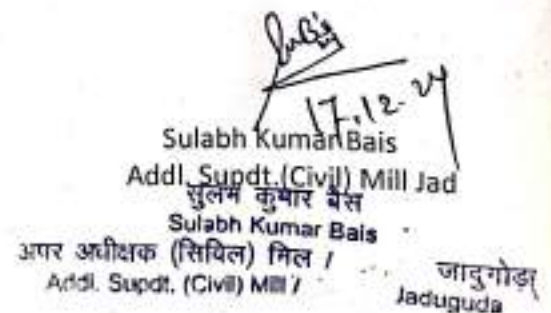 17.12.24
Sulabh Kumar Bais
Addl. Supdt.(Civil) Mill Jad
सुलभ कुमार बैस
Sulabh Kumar Bais
अपर अधीक्षक (सिविल) मिल /
Addl. Supdt. (Civil) Mill /
जादुगोड़ा
Jaduguda